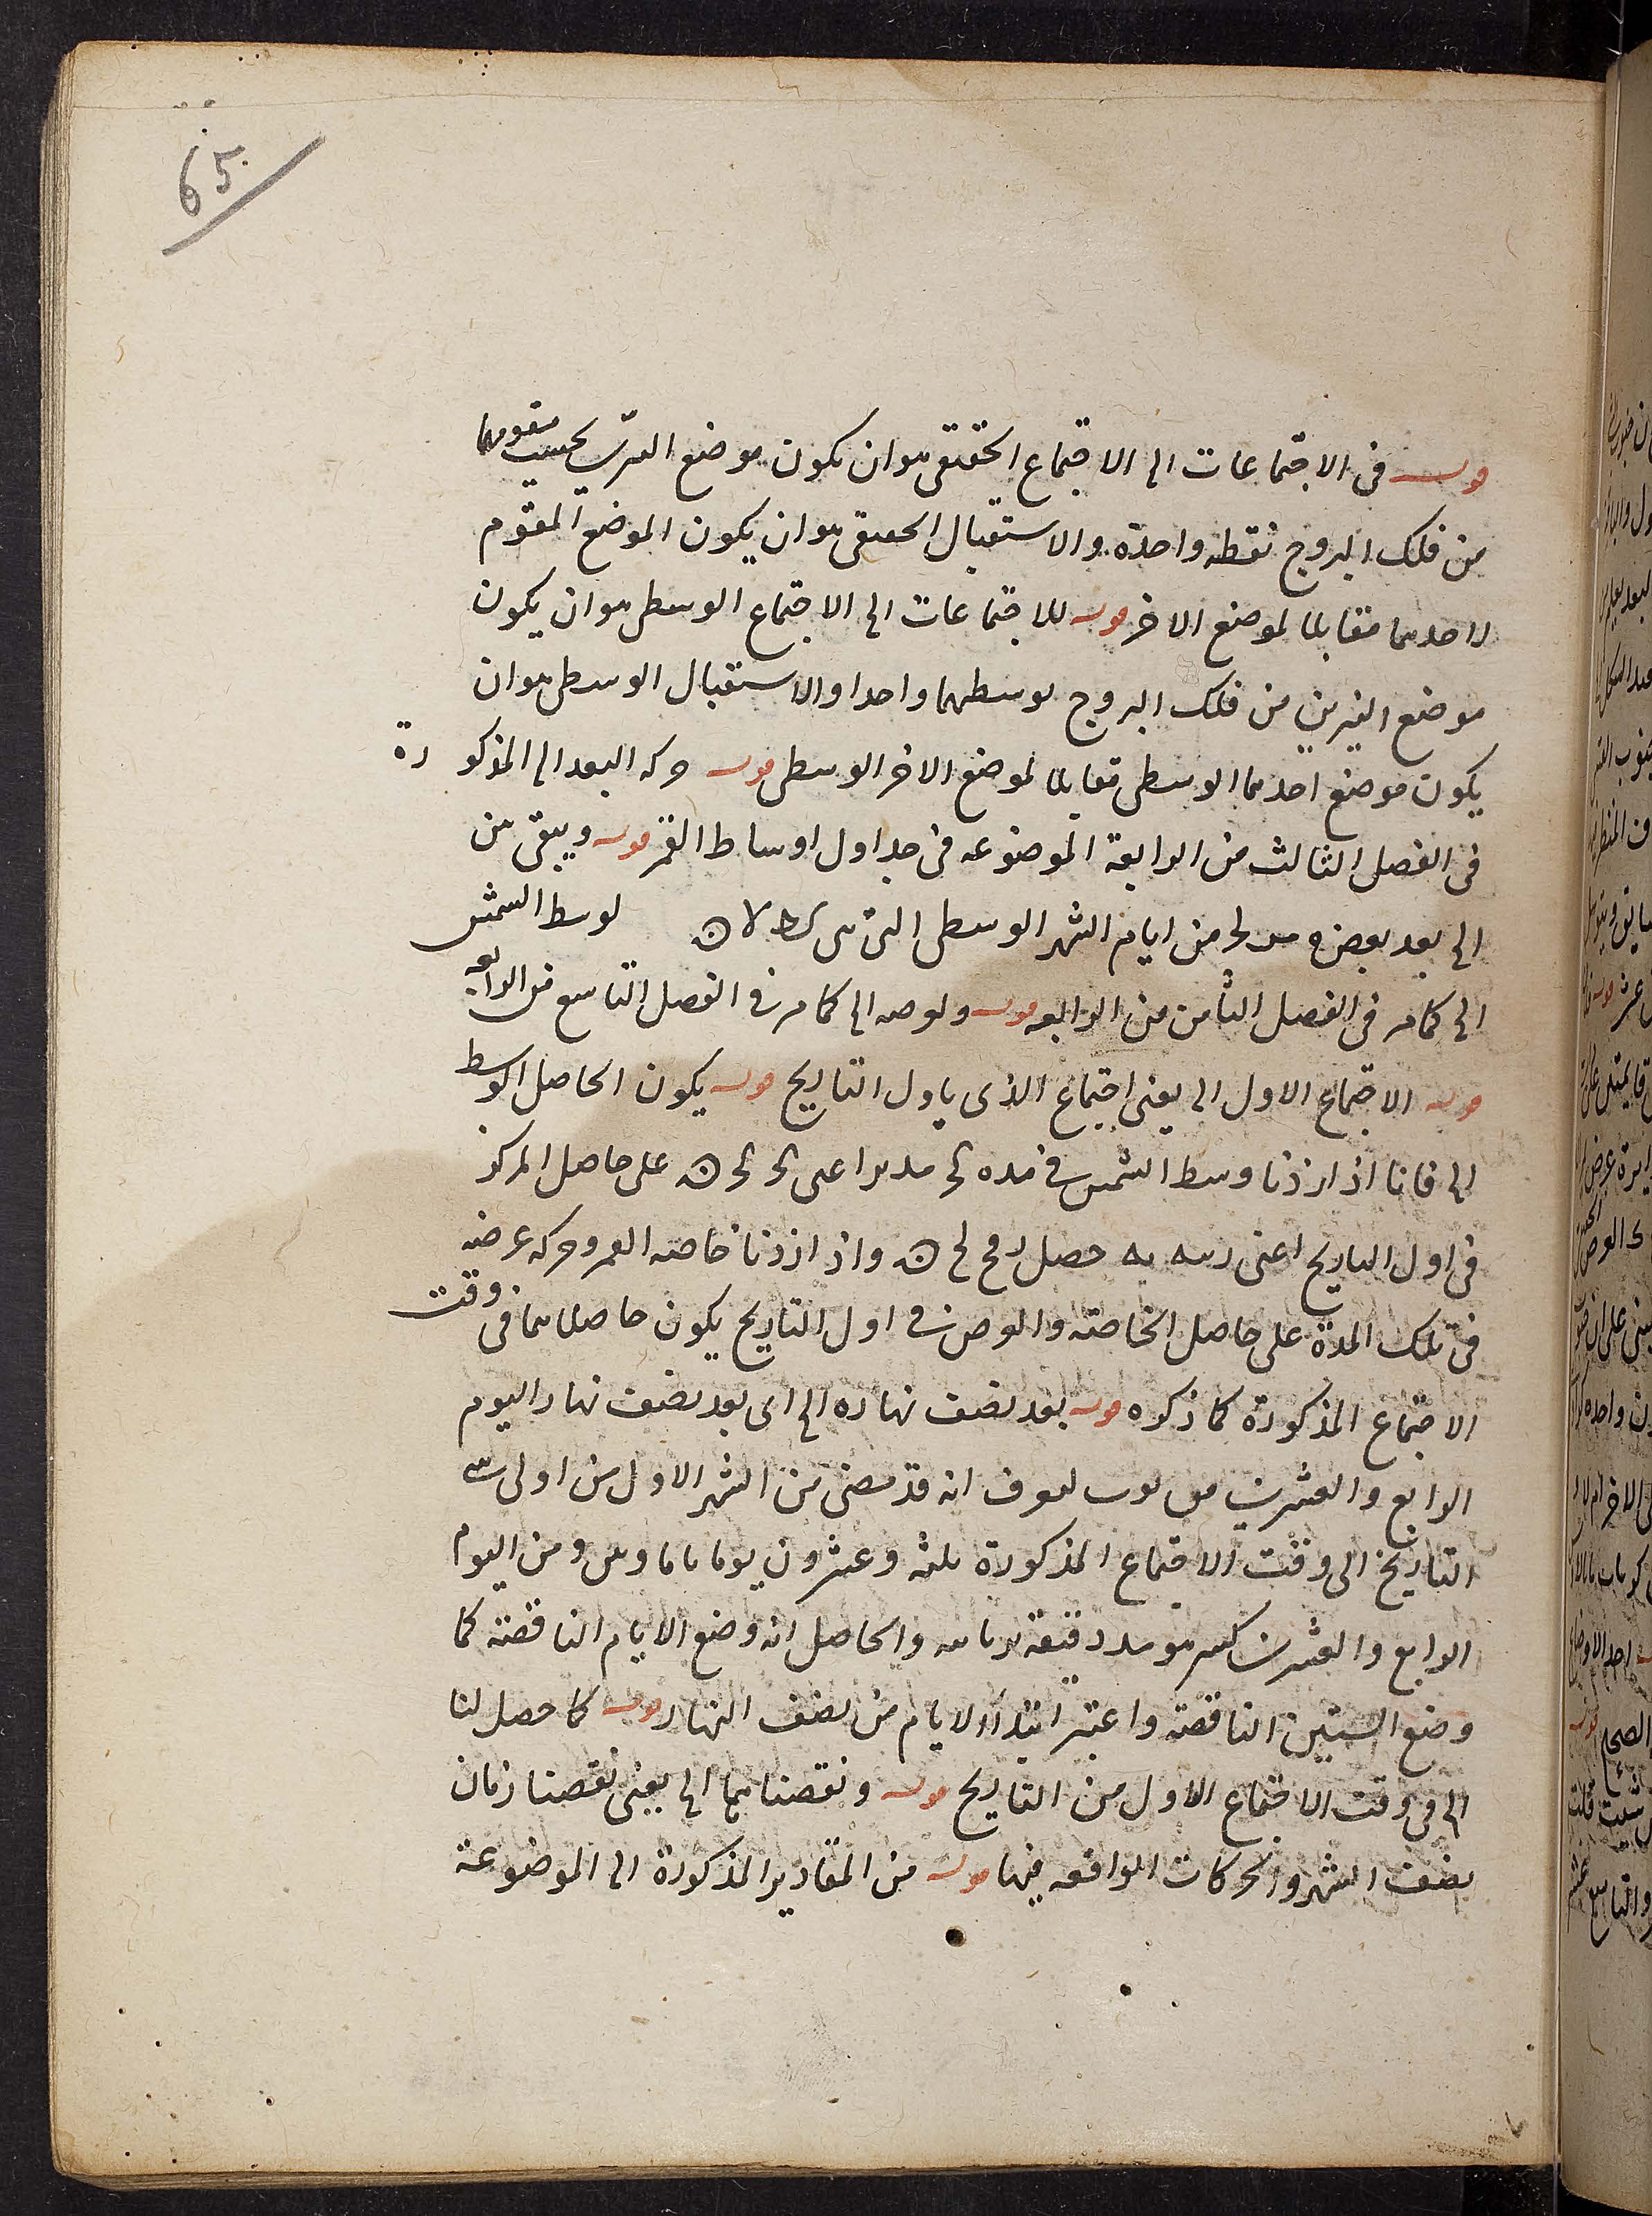 65
قوله فى الاجتماعات الى الاجتماع الحقيقى هو ان يكون موضع النيرين بحسب مقومهما
من فلك البروج نقطه واحدة والاستقبال الحقيقى هو ان يكون الموضع المقوم
لاحدهما مقابلا لموضع الاخر قوله للاجتماعات الى الاجتماع الوسطى هو ان يكون
موضع النيرين من فلك البروج بوسطهما واحدا والاستقبال الوسطى هو ان
يكون موضع احدهما الوسطى مقابلا لموضع الاخر الوسطى قوله حركة البعد الى المذكورة
فى الفصل الثالث من الرابعة الموضوعه فى جداول اوساط القمر قوله ويبقى من
الى بعد بعض من ايام الشهر الوسطى التى هى كط لا ن لوسط الشمس
الى كما مر فى الفصل الثامن من الرابعه قوله ولعرضه الى كما مر فى الفصل التاسع من الرابعه
قوله الاجتماع الاول الى يعنى اجتماع الذى ياول التاريخ قوله يكون الحاصل الوسط
الى فانا اذا زدنا وسط الشمس فى مده على حاصل المركز
فى اول التاريخ اعنى رسه يه حصل واذا زدنا خاصه القمر وحركه عرضه
فى تلك المدة على حاصل الخاصته والعرض فى اول التاريخ يكون حاصلاهما فى وقت
الاجتماع المذكورة كما ذكره قوله بعد نصف نهاره الى اى بعد نصف نهار اليوم
الرابع والعشرين من ليعرف انه قد مضى من الشهر الاول من اولى سنى
التاريخ الى وقت الاجتماع المذكورة ثلثة وعشرون يوما تاما ومن اليوم
الرابع والعشرين كسر هو دقيقة والحاصل انه وضع الايام الناقصة كما
وضع السنين الناقصة واعتبر ابتدا الايام من نصف النهار قوله كما حصل لنا
الى فى وقت الاجتماع الاول من التاريخ قوله ونقصناهما الى يعنى نقصنا زمان
نصف الشهر والحركات الواقعه فيها قوله من المقادير المذكورة الى الموضوعة